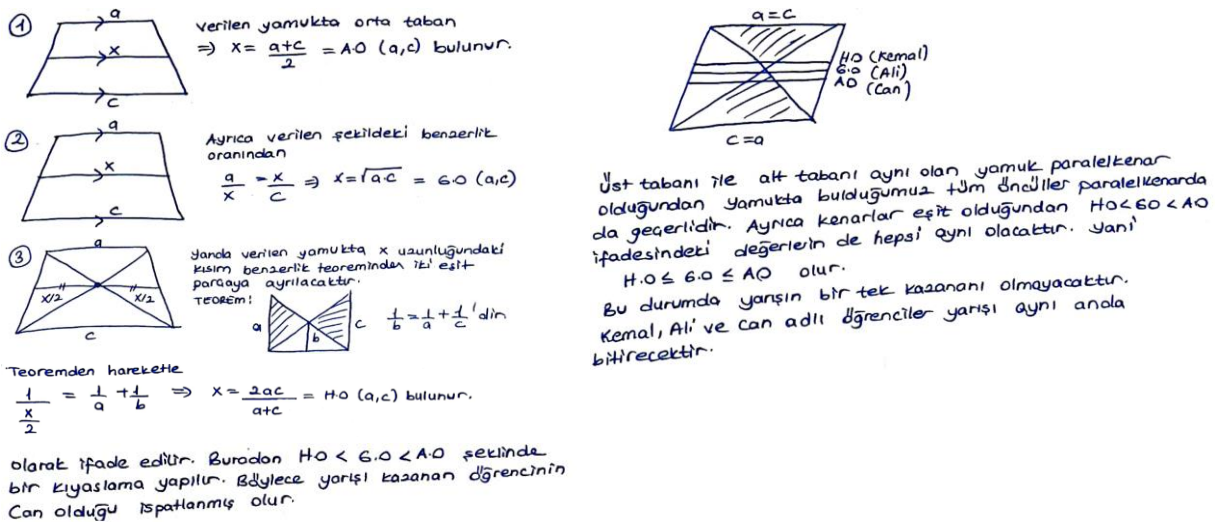 ①
a
x
c
verilen yamukta orta taban
⇒ x = a+c/2 = A.O (a,c) bulunur.
②
a
x
c
Ayrıca verilen şekildeki benzerlik
oranından
a/x = x/c ⇒ x = √a.c = G.O (a,c)
③
a
x/2 x/2
c
Yanda verilen yamukta x uzunluğundaki
kısım benzerlik teoreminden iki eşit
parçaya ayrılacaktır.
TEOREM:
a b c
1/b = 1/a + 1/c 'dir
Teoremden hareketle
1/(x/2) = 1/a + 1/b ⇒ x = 2ac/a+c = H.O (a,c) bulunur.
olarak ifade edilir. Buradan H.O < G.O < A.O şeklinde
bir kıyaslama yapılır. Böylece yarışı kazanan öğrencinin
Can olduğu ispatlanmış olur.
a=c
HO (Kemal)
G.O (Ali)
AO (Can)
c=a
Üst tabanı ile alt tabanı aynı olan yamuk paralelkenar
olduğundan yamukta bulduğumuz tüm öncüller paralelkenarda
da geçerlidir. Ayrıca kenarlar eşit olduğundan HO<GO<AO
ifadesindeki değerlerin de hepsi aynı olacaktır. Yani
H.O ≤ G.O ≤ AO olur.
Bu durumda yarışın bir tek kazananı olmayacaktır.
Kemal, Ali ve Can adlı öğrenciler yarışı aynı anda
bitirecektir.